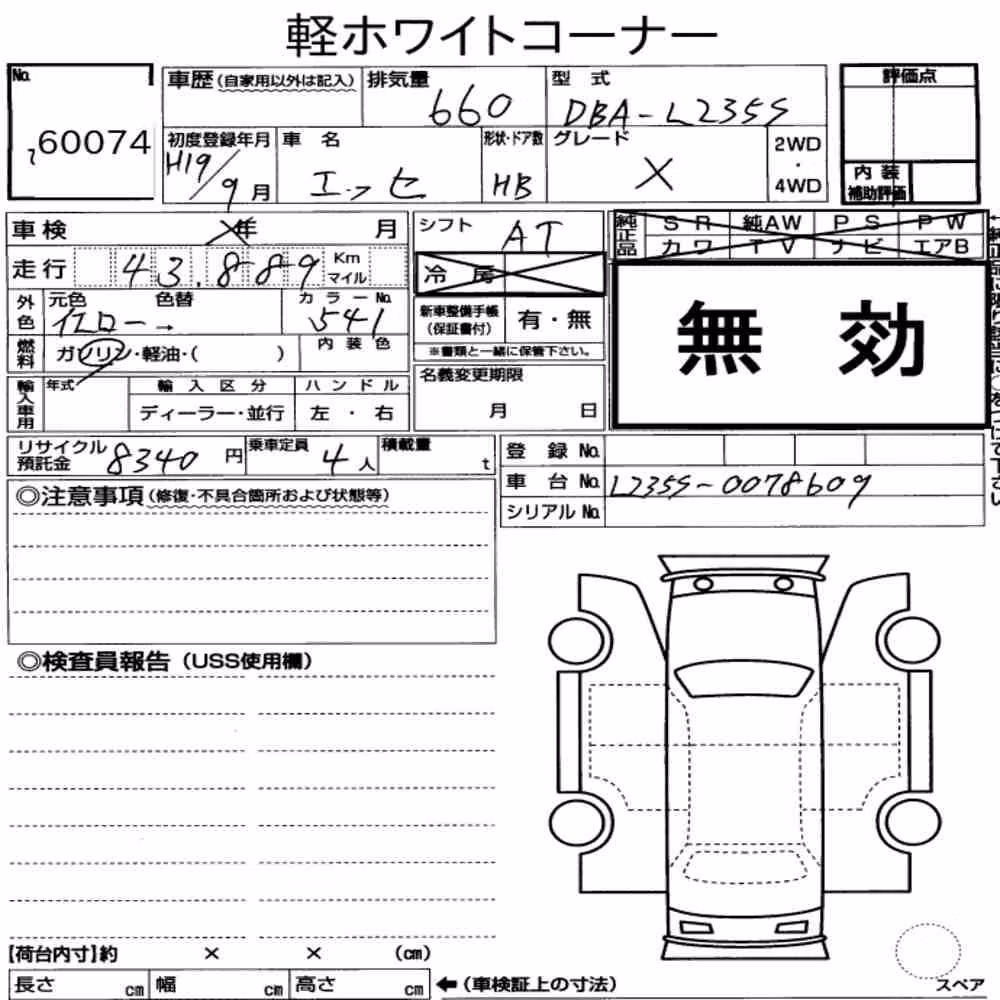 軽ホワイトコーナー
No. 60074
車歴(自家用以外は記入) 排気量 660 型式 DBA-L235S 評価点
初度登録年月 H19/9月 車名 エッセ 形状・ドア数 HB グレード X 2WD・4WD 内装補助評価
車検 年 月 シフト AT 純正品 SR 純AW PS PW
カワ TV ナビ エアB
走行 43,889 Km マイル 冷房
無効
外色 元色 イエロー→ 色替 カラーNo. 541 新車整備手帳(保証書付) 有・無
内装色 ※書類と一緒に保管下さい。
燃料 ガソリン・軽油・( )
輸入車用 年式 輸入区分 ハンドル 名義変更期限
ディーラー・並行 左・右 月 日
リサイクル預託金 8340円 乗車定員 4人 積載量 t 登録No.
車台No. L235S-0078609
シリアルNo.
◎注意事項(修復・不具合箇所および状態等)
◎検査員報告(USS使用欄)
【荷台内寸】約 × × (cm)
長さ cm 幅 cm 高さ cm ←(車検証上の寸法)
スペア